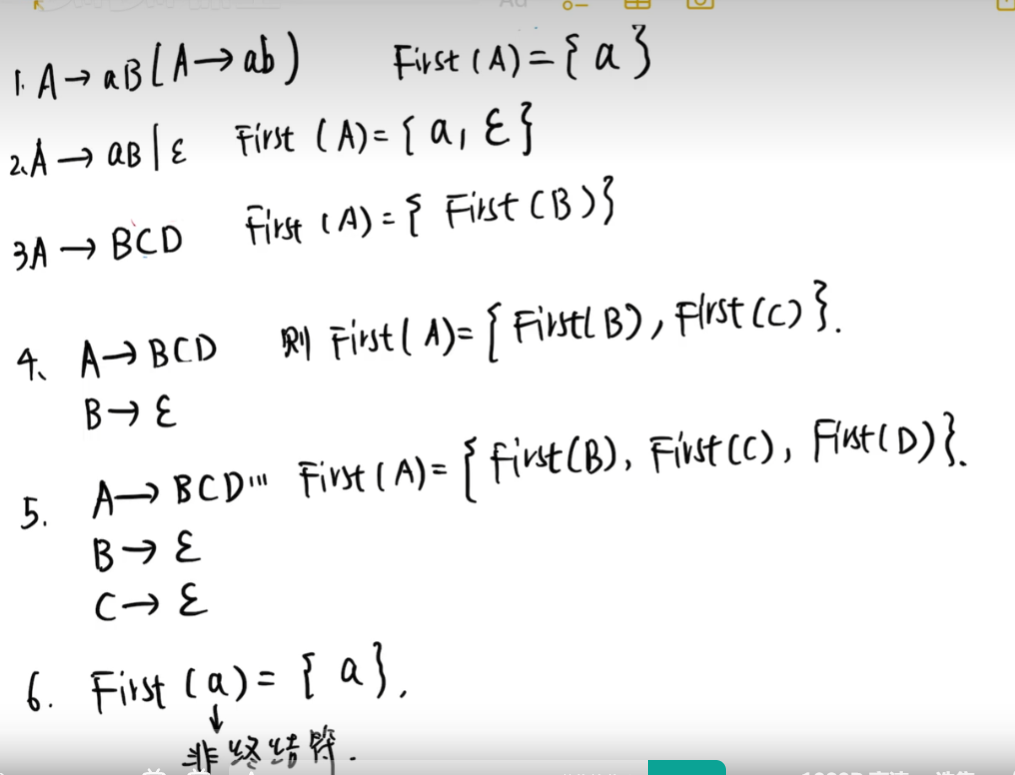 1. A→aB(A→ab) First(A)={a}
2、A→aB|ε First(A)={a,ε}
3A→BCD First(A)={First(B)}
4、A→BCD 则 First(A)={First(B),First(C)}.
B→ε
5. A→BCD… First(A)={First(B),First(C),First(D)}.
B→ε
C→ε
6. First(a)={a}.
↓
非终结符.